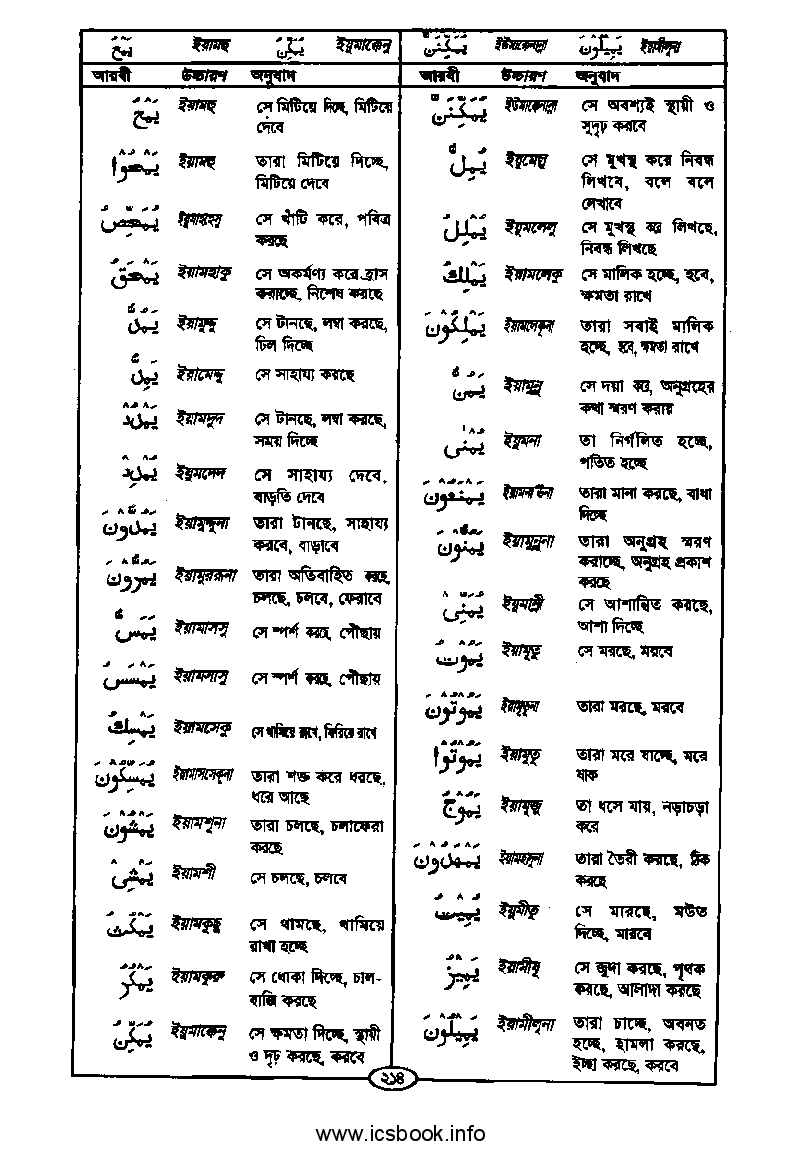 يَمْحُ ইয়ামহু يُمَكِّنُ ইয়ুমাক্কেনু
আরবী উচ্চারণ অনুবাদ
يَمْحُ ইয়ামহু সে মিটিয়ে দিচ্ছে, মিটিয়ে
দেবে
يَمْحُوْا ইয়ামহু তারা মিটিয়ে দিচ্ছে,
মিটিয়ে দেবে
يُمَحِّصُ সে খাঁটি করে, পবিত্র
করছে
يَمْحَقُ ইয়ামহাকু সে অকর্মণ্য করে-হ্রাস
করাচ্ছে, নিশেষ করছে
يَمُدُّ ইয়ামুদ্দু সে টানছে, লম্বা করছে,
ঢিল দিচ্ছে
يُمِدُّ ইয়ামেদ্দু সে সাহায্য করছে
يَمْدُدْ ইয়ামদুদ সে টানছে, লম্বা করছে,
সময় দিচ্ছে
يُمْدِدْ ইয়ুমদেদ সে সাহায্য দেবে,
বাড়তি দেবে
يَمُدُّوْنَ ইয়ামুদ্দুনা তারা টানছে, সাহায্য
করবে, বাড়াবে
يَمُرُّوْنَ ইয়ামুররূনা তারা অতিবাহিত করছে,
চলছে, চলবে, ফেরাবে
يَمَسُّ ইয়ামাসসু সে স্পর্শ করছে, পৌছায়
يَمْسَسُ ইয়ামসাসু সে স্পর্শ করছে, পৌছায়
يُمْسِكُ ইয়ামসেকু সে থামিয়ে রাখে, ফিরিয়ে রাখে
يُمَسِّكُوْنَ ইয়ামাসসেকূনা তারা শক্ত করে ধরছে,
ধরে আছে
يَمْشُوْنَ ইয়ামশূনা তারা চলছে, চলাফেরা
করছে
يَمْشِىْ ইয়ামশী সে চলছে, চলবে
يَمْكُثُ ইয়ামকুছু সে থামছে, থামিয়ে
রাখা হচ্ছে
يَمْكُرُ ইয়ামকুরু সে ধোকা দিচ্ছে, চাল-
বাজি করছে
يُمَكِّنُ ইয়ুমাক্কেনু সে ক্ষমতা দিচ্ছে, স্থায়ী
ও দৃঢ় করছে, করবে
يُمَكِّنَنَّ يَمِيْلُوْنَ ইয়ামীলূনা
আরবী উচ্চারণ অনুবাদ
يُمَكِّنَنَّ সে অবশ্যই স্থায়ী ও
সুদৃঢ় করবে
يُمِلُّ ইয়ুমেল্লু সে মুখস্থ করে নিবন্ধ
লিখাবে, বলে বলে
লেখাবে
يُمْلِلُ ইয়ুমলেলু সে মুখস্থ করে লিখছে,
নিবন্ধ লিখছে
يَمْلِكُ ইয়ামলেকু সে মালিক হচ্ছে, হবে,
ক্ষমতা রাখে
يَمْلِكُوْنَ ইয়ামলেকূনা তারা সবাই মালিক
হচ্ছে, হবে, ক্ষমতা রাখে
يَمُنُّ ইয়ামুন্নু সে দয়া করে, অনুগ্রহের
কথা স্মরণ করায়
يُمْنٰى ইয়ুমনা তা নির্গলিত হচ্ছে,
পতিত হচ্ছে
يَمْنَعُوْنَ ইয়ামনাউনা তারা মানা করছে, বাধা
দিচ্ছে
يَمُنُّوْنَ ইয়ামুন্নুনা তারা অনুগ্রহ স্মরণ
করাচ্ছে, অনুগ্রহ প্রকাশ
করছে
يُمَنِّىْ ইয়ুমান্নী সে আশান্বিত করছে,
আশা দিচ্ছে
يَمُوْتُ ইয়ামূতু সে মরছে, মরবে
يَمُوْتُوْنَ ইয়ামূতূনা তারা মরছে, মরবে
يَمُوْتُوْا ইয়ামূতু তারা মরে যাচ্ছে, মরে
যাক
يَمُوْجُ ইয়ামূজু তা ধসে যায়, নড়াচড়া
করে
يَمْهَدُوْنَ ইয়ামহাদূনা তারা তৈরী করছে, ঠিক
করছে
يُمِيْتُ ইয়ুমীতু সে মারছে, মউত
দিচ্ছে, মারবে
يَمِيْزُ ইয়ামীযু সে জুদা করছে, পৃথক
করছে, আলাদা করছে
يَمِيْلُوْنَ ইয়ামীলূনা তারা চাচ্ছে, অবনত
হচ্ছে, হামলা করছে,
ইচ্ছা করছে, করবে
২১৪
www.icsbook.info